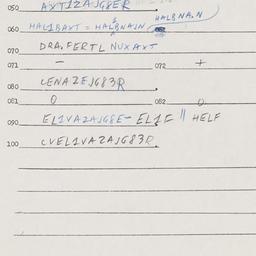 050 AXT1ZAJG8ER
HALBNA.N
060 HAL1BAXT = HALBNAJN
070 DRA, FERTL NUXAXT
071 — 072 +
080 LENAZEJG83R
081 0 082 0
090 EL1VAZAJG8E- EL1F || HELF
100 CVEL1VAZAJG83R.